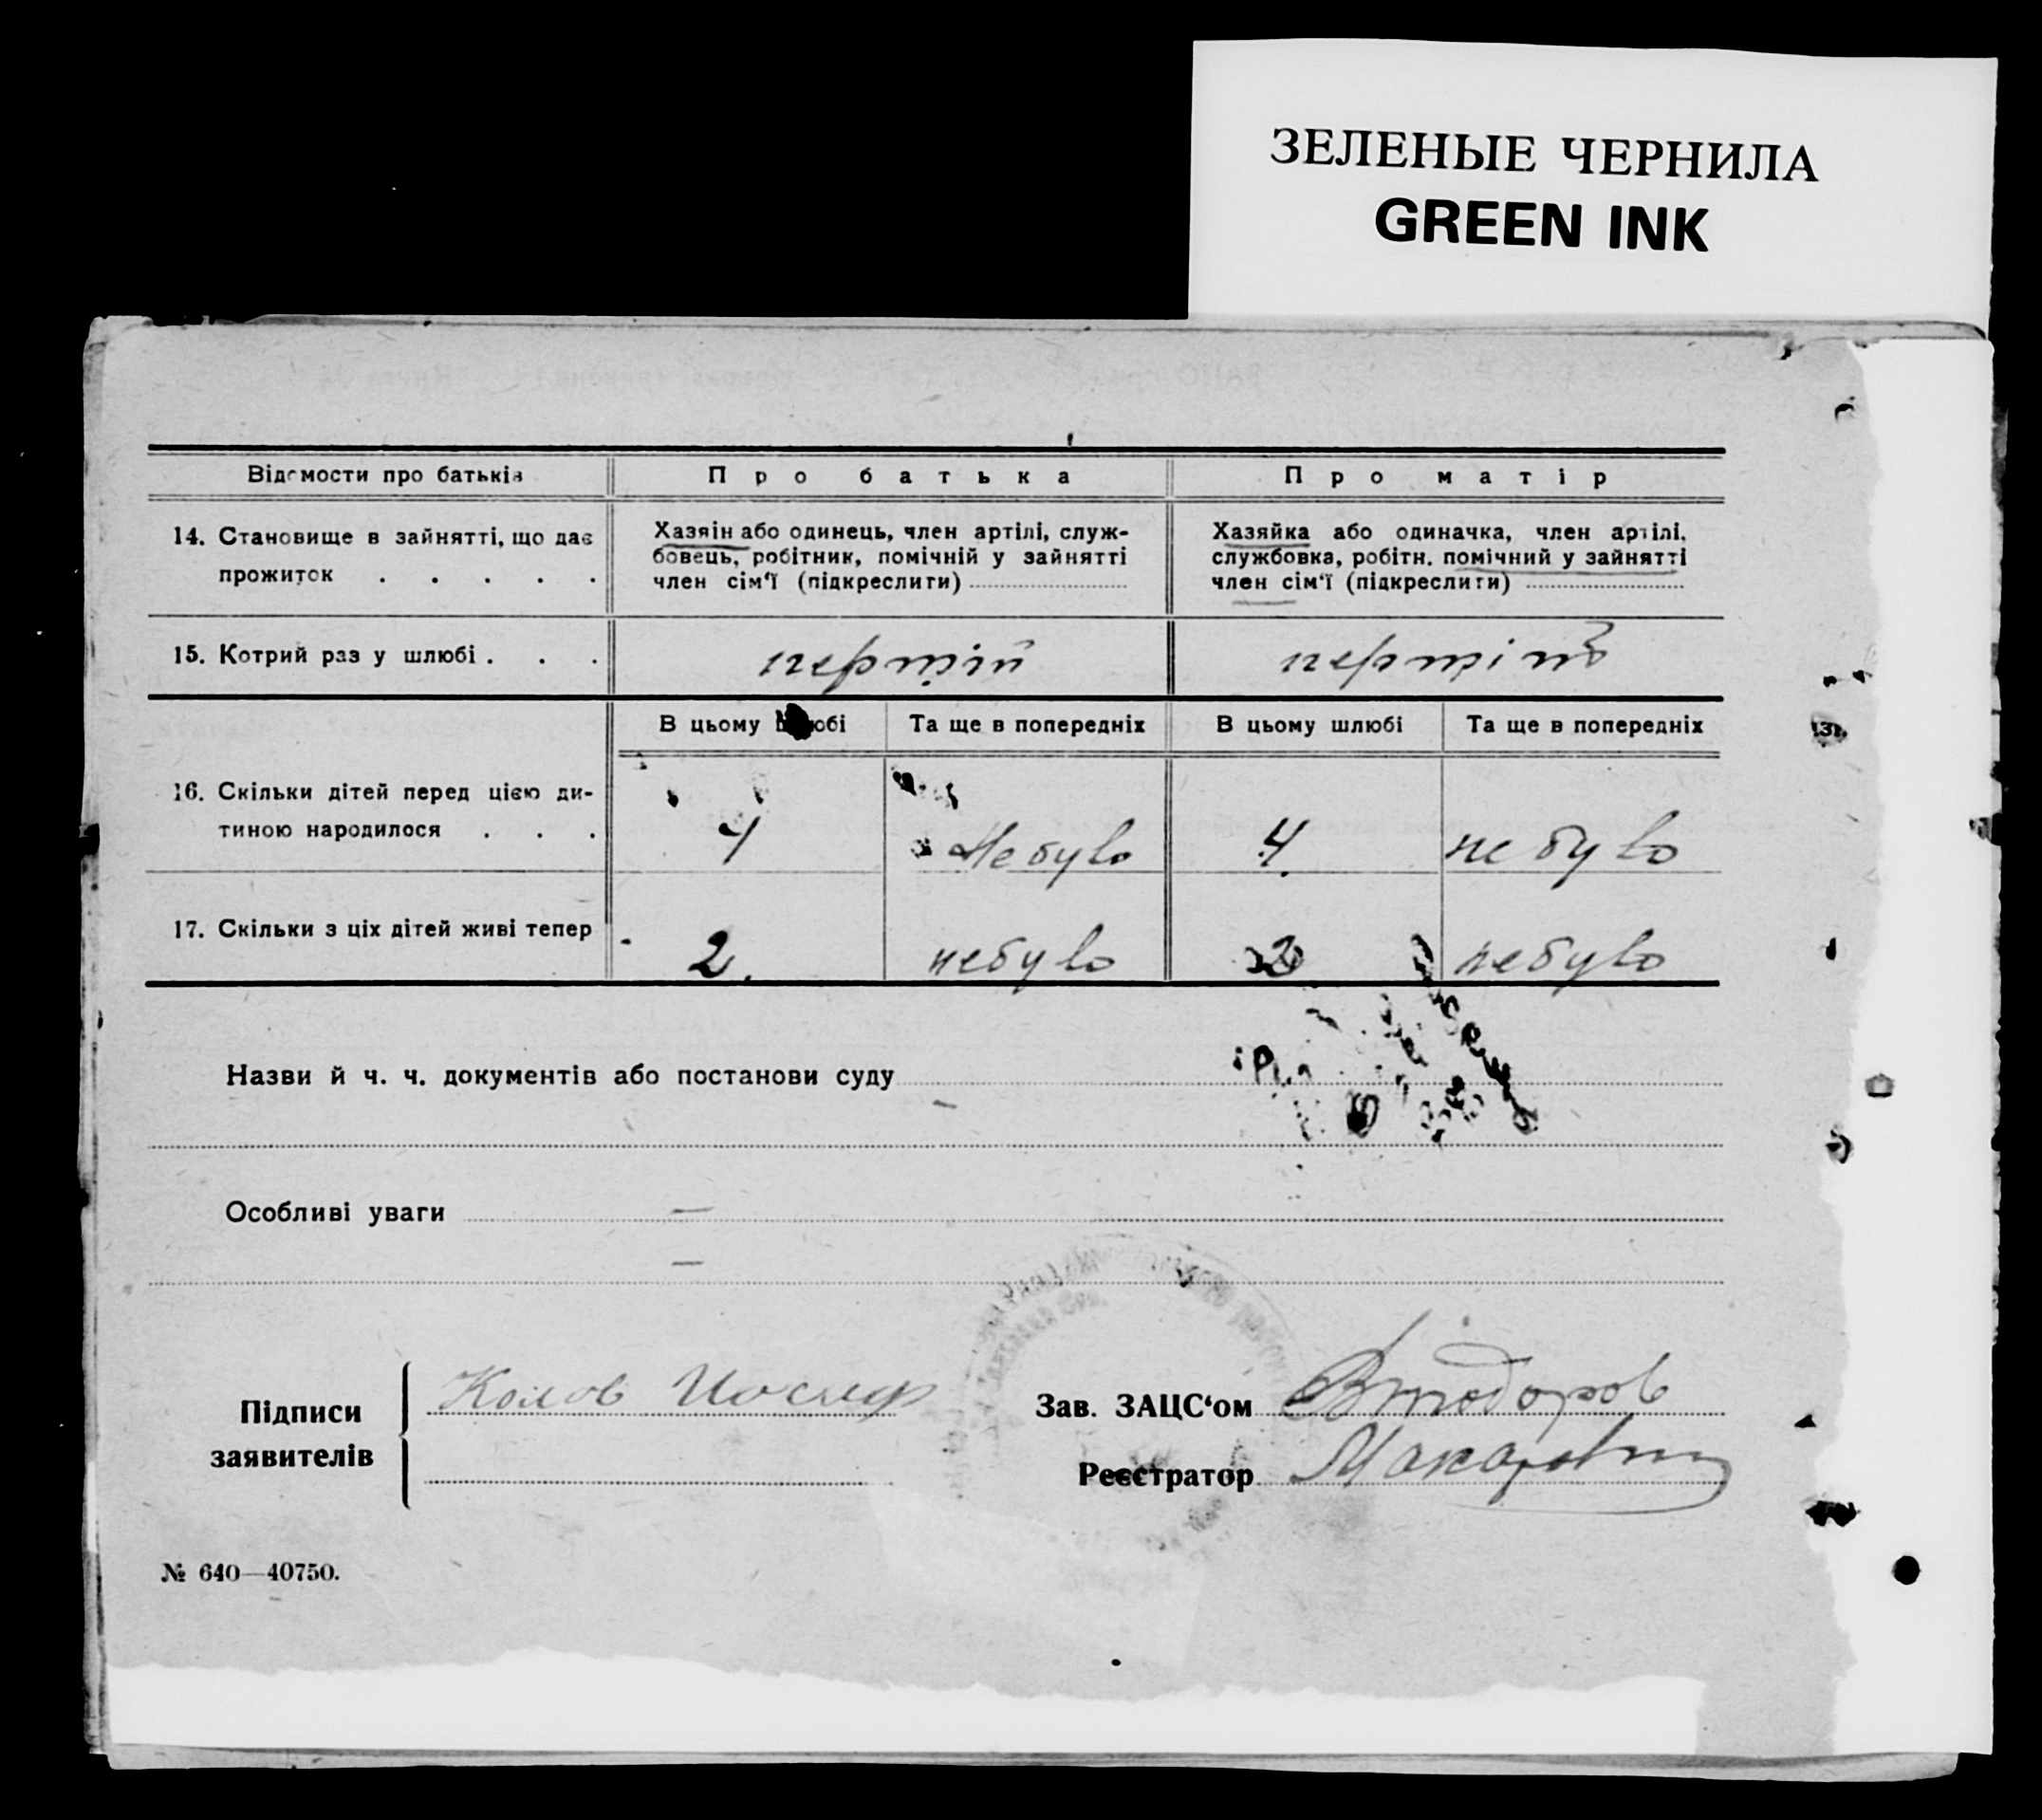 ЗЕЛЕНЫЕ ЧЕРНИЛА
GREEN INK
Відомости про батьків
Про батька
Про матір
14. Становище в зайнятті, що дає
прожиток . . . . .
Хазяін або одинець, член артілі, служ-
бовець, робітник, помічній у зайнятті
член сім‘ї (підкреслити)
Хазяйка або одиначка, член артілі,
службовка, робітн. помічний у зайнятті
член сім‘ї (підкреслити)
15. Котрий раз у шлюбі . . .
першій
В цьому шлюбі
Та ще в попередніх
В цьому шлюбі
Та ще в попередніх
16. Скільки дітей перед цією ди-
тиною народилося . . .
4
Небуло
4
небуло
17. Скільки з ціх дітей живі тепер
2
небуло
2
небуло
Назви й ч. ч. документів або постанови суду
—
Особливі уваги —
—
Підписи
заявителів
Иосиф
Зав. ЗАЦС‘ом
Реєстратор
№ 640—40750.